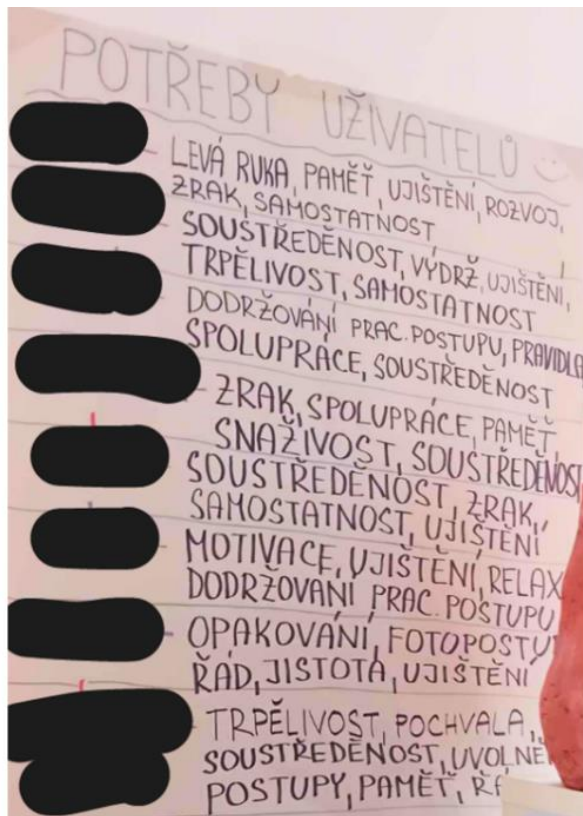 POTŘEBY UŽIVATELŮ
LEVÁ RUKA, PAMĚŤ, UJIŠTĚNÍ, ROZVOJ,
ZRAK, SAMOSTATNOST
SOUSTŘEDĚNOST, VÝDRŽ, UJIŠTĚNÍ,
TRPĚLIVOST, SAMOSTATNOST
DODRŽOVÁNÍ PRAC. POSTUPU, PRAVIDLA
SPOLUPRÁCE, SOUSTŘEDĚNOST
ZRAK, SPOLUPRÁCE, PAMĚŤ,
SNAŽIVOST, SOUSTŘEDĚNOST
SOUSTŘEDĚNOST, ZRAK,
SAMOSTATNOST, UJIŠTĚNÍ
MOTIVACE, UJIŠTĚNÍ, RELAX
DODRŽOVÁNÍ PRAC. POSTUPU
OPAKOVÁNÍ,
ŘÁD, JISTOTA, UJIŠTĚNÍ
TRPĚLIVOST, POCHVALA,
SOUSTŘEDĚNOST,
POSTUPY, PAMĚŤ,